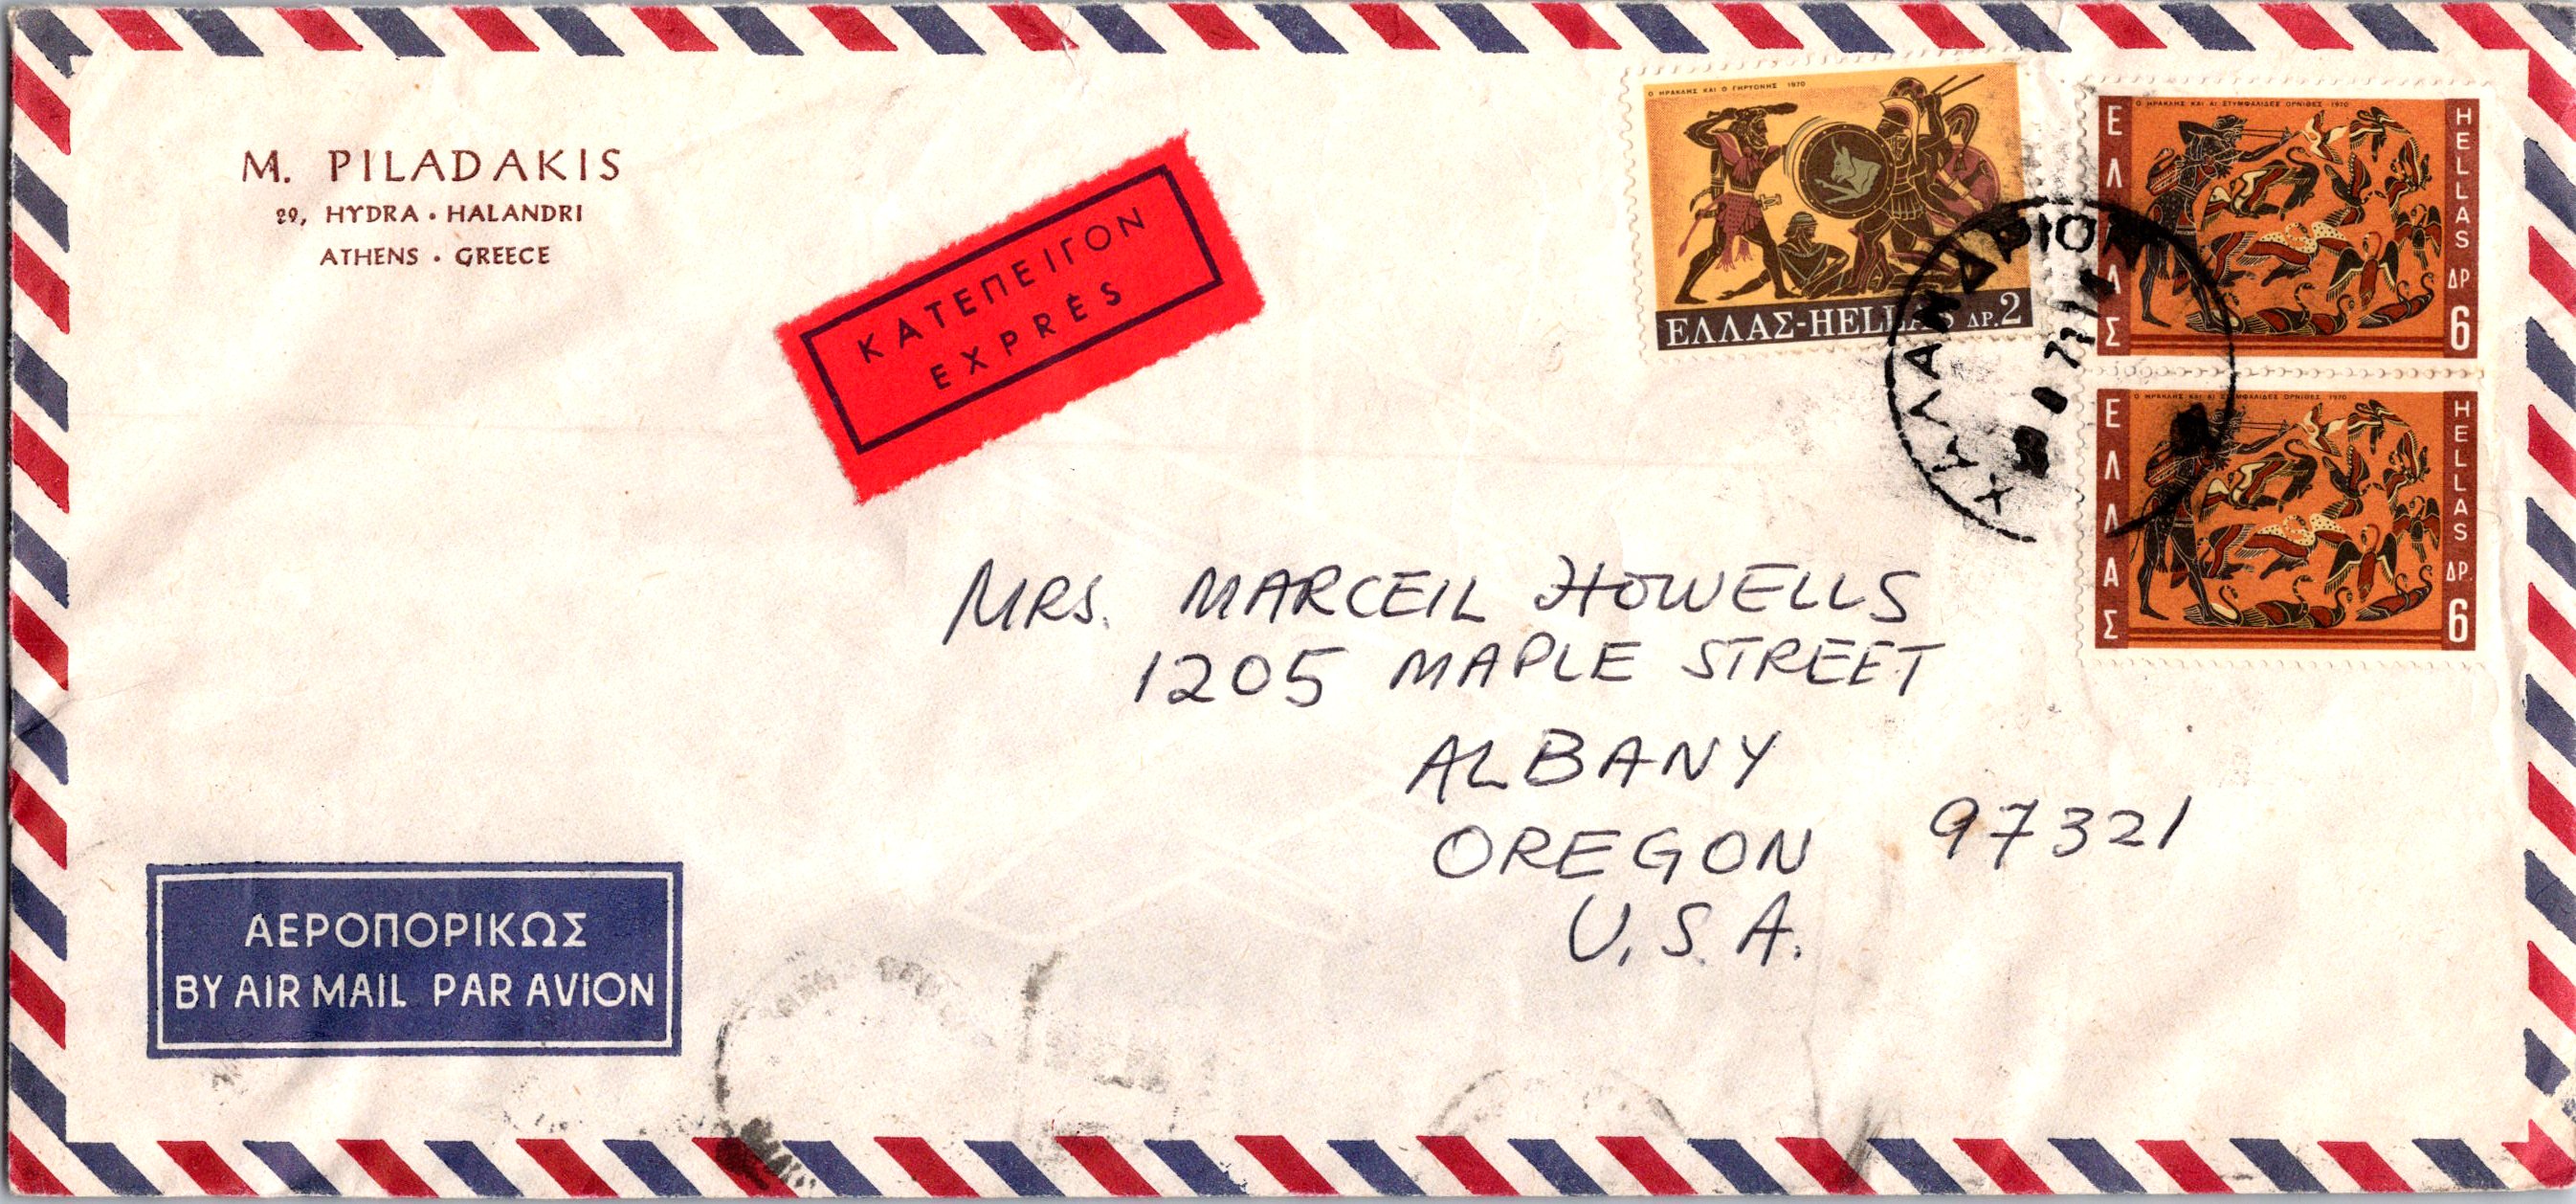 M. PILADAKIS
29, HYDRA • HALANDRI
ATHENS • GREECE
ΚΑΤΕΠΕΙΓΟΝ
EXPRÈS
Ο ΗΡΑΚΛΗΣ ΚΑΙ Ο ΓΗΡΥΟΝΗΣ 1970
ΕΛΛΑΣ-HELLAS ΔΡ. 2
Ο ΗΡΑΚΛΗΣ ΚΑΙ ΑΙ ΣΤΥΜΦΑΛΙΔΕΣ ΟΡΝΙΘΕΣ 1970
ΕΛΛΑΣ
HELLAS ΔΡ. 6
Ο ΗΡΑΚΛΗΣ ΚΑΙ ΑΙ ΣΤΥΜΦΑΛΙΔΕΣ ΟΡΝΙΘΕΣ 1970
ΕΛΛΑΣ
HELLAS ΔΡ. 6
ΧΑΛΑΝΔΡΙΟΝ
MRS. MARCEIL HOWELLS
1205 MAPLE STREET
ALBANY
OREGON 97321
U.S.A.
ΑΕΡΟΠΟΡΙΚΩΣ
BY AIR MAIL PAR AVION